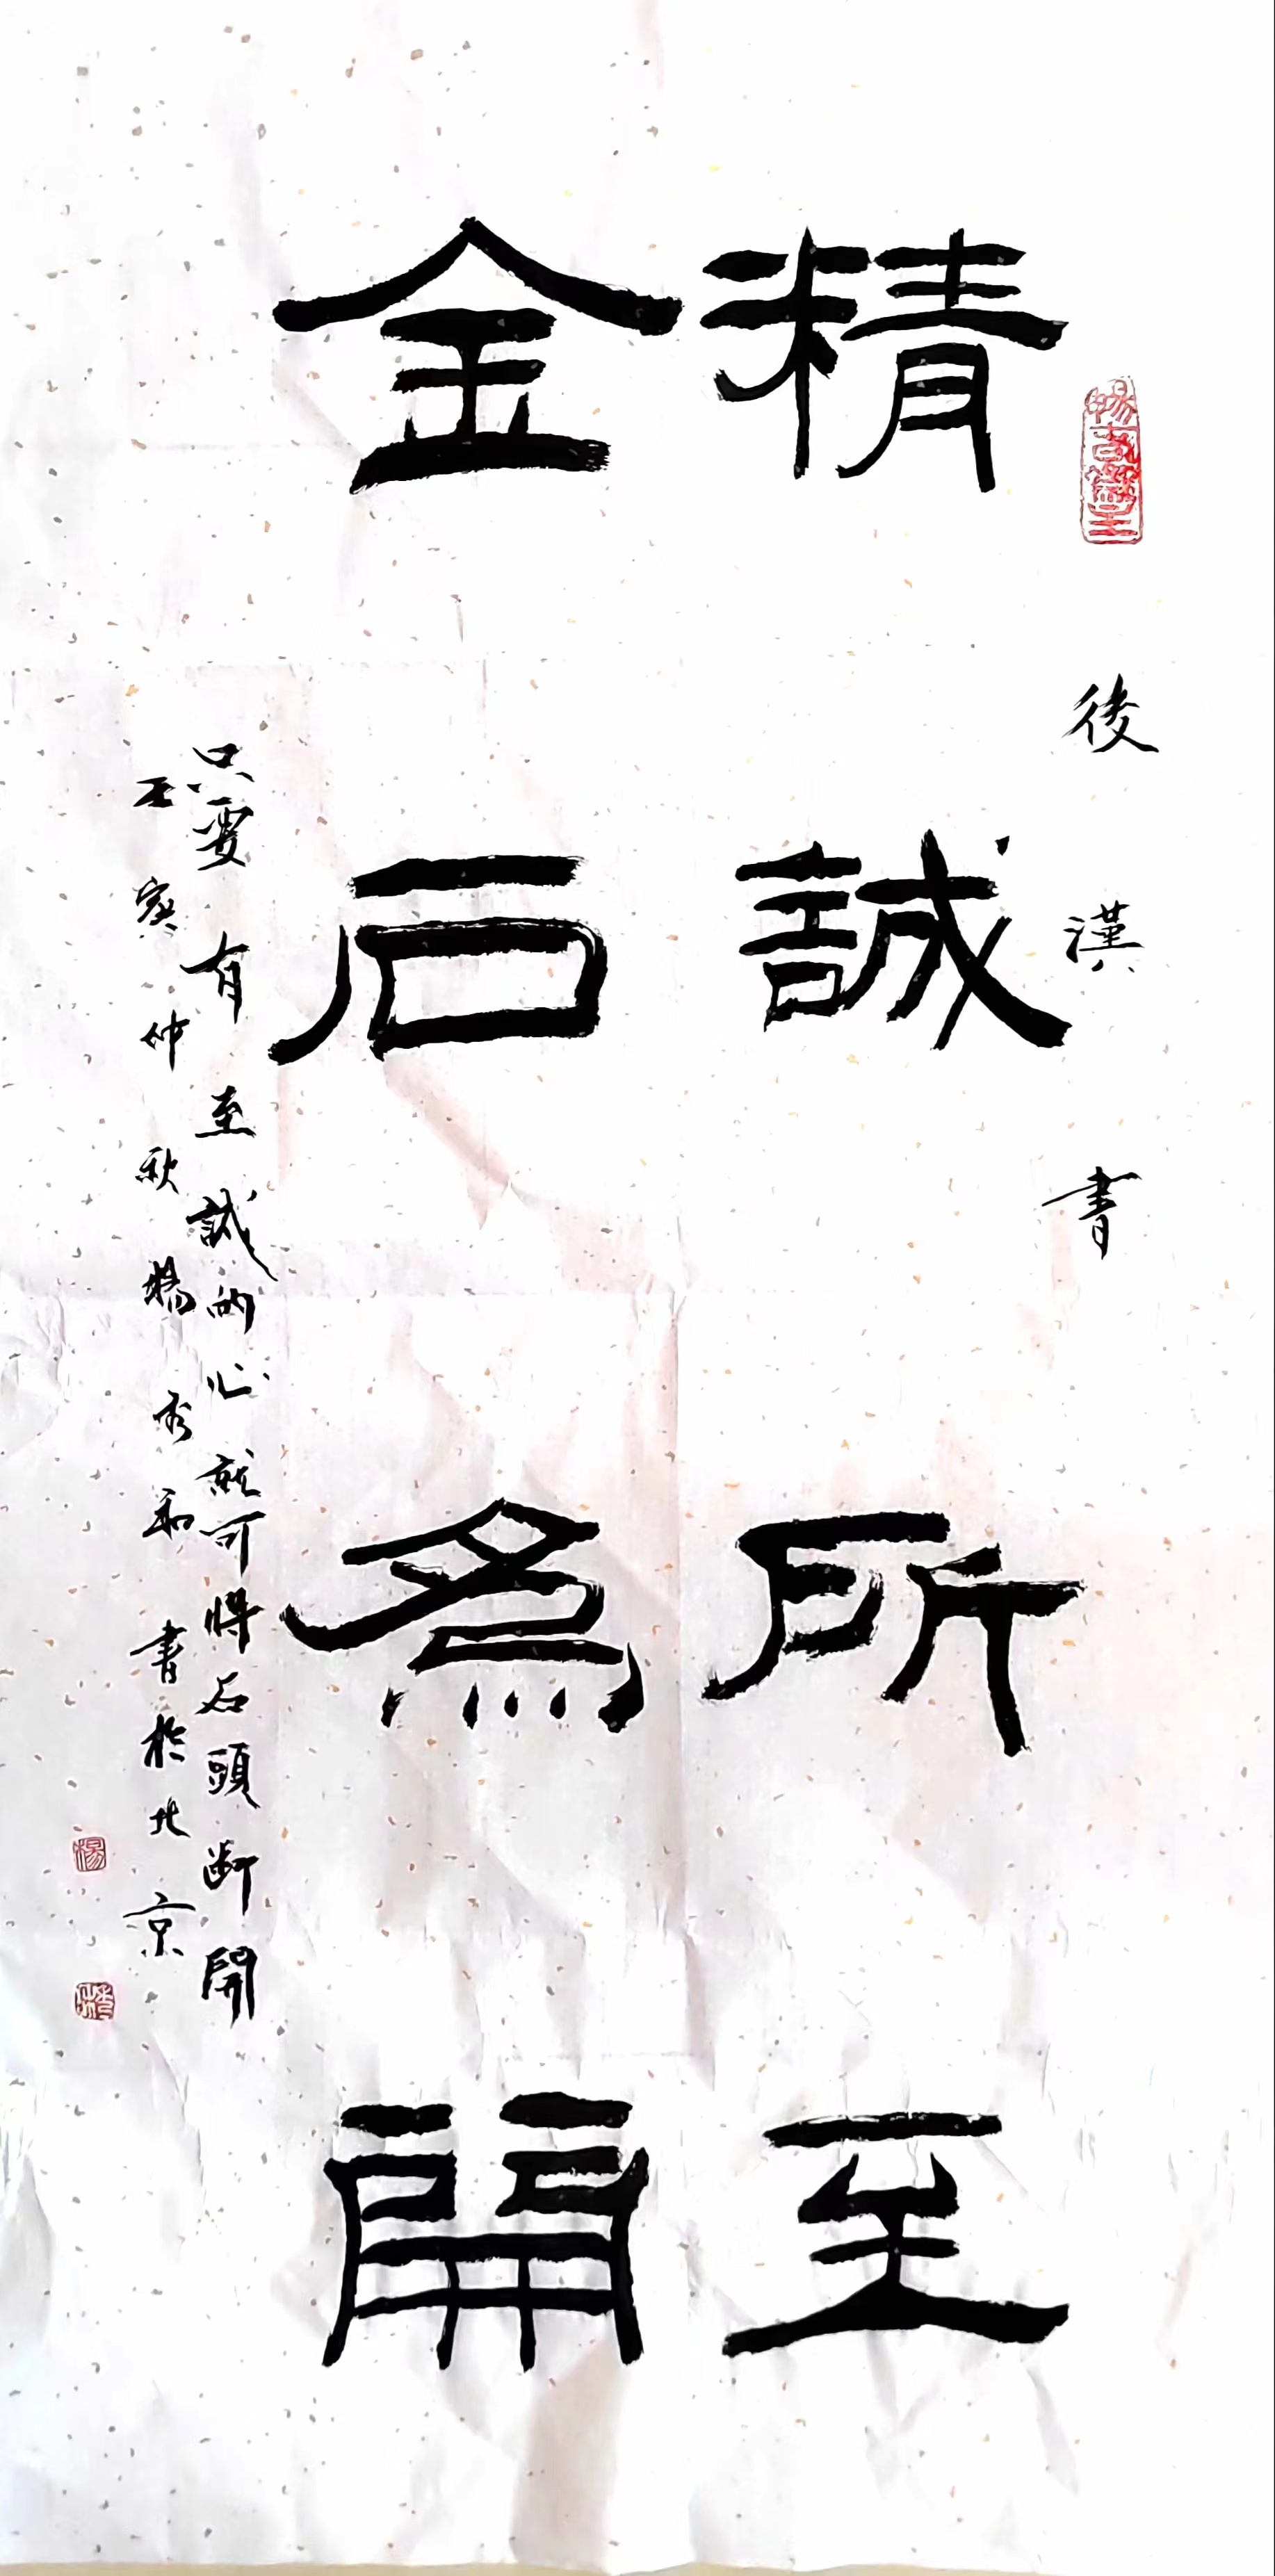 後漢書
精誠所至
金石為開
只要有至誠的心就可將石頭斷開
壬寅仲秋楊秀和書於北京
楊